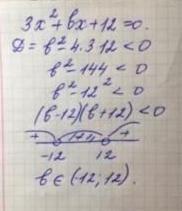 3x²+bx+12=0.
D=b²-4·3·12<0
b²-144<0
b²-12²<0
(b-12)(b+12)<0
+ +
-12 12
b∈(-12;12).